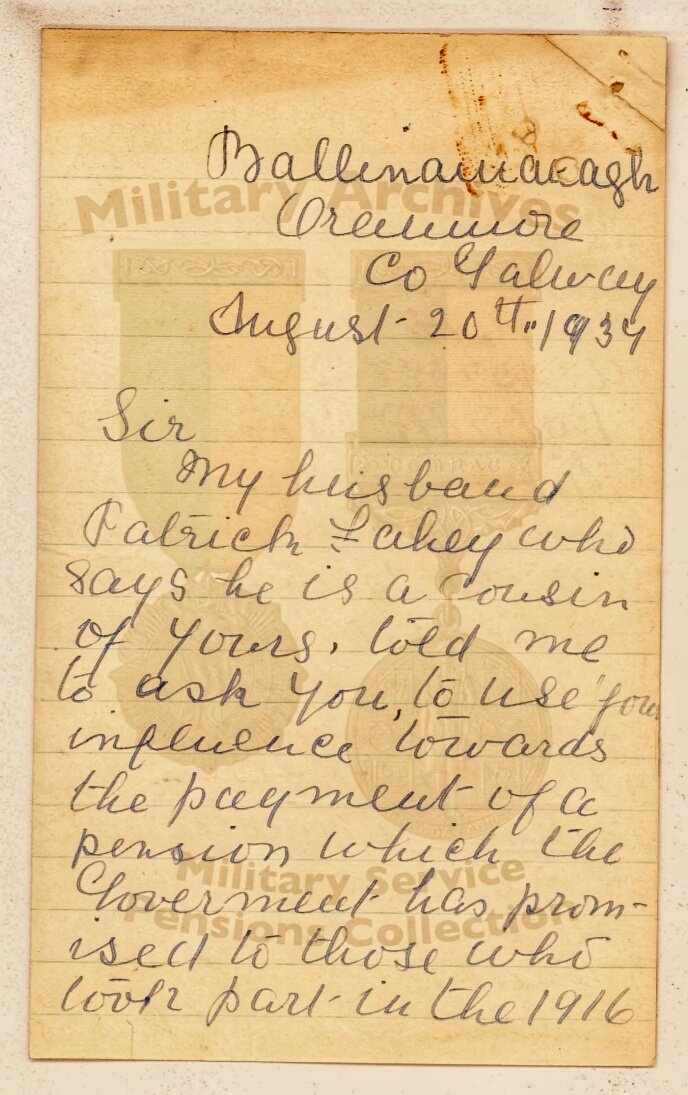 Military Archives
Oranmore
Co Galway
August 20th 1934
Sir
My husband
Patrick Fahey who
says he is a cousin
of yours, told me
to ask you, to use your
influence towards
the payment of a
pension which the
Military Service
Goverment has prom-
Pensions Collection
ised to those who
took part in the 1916